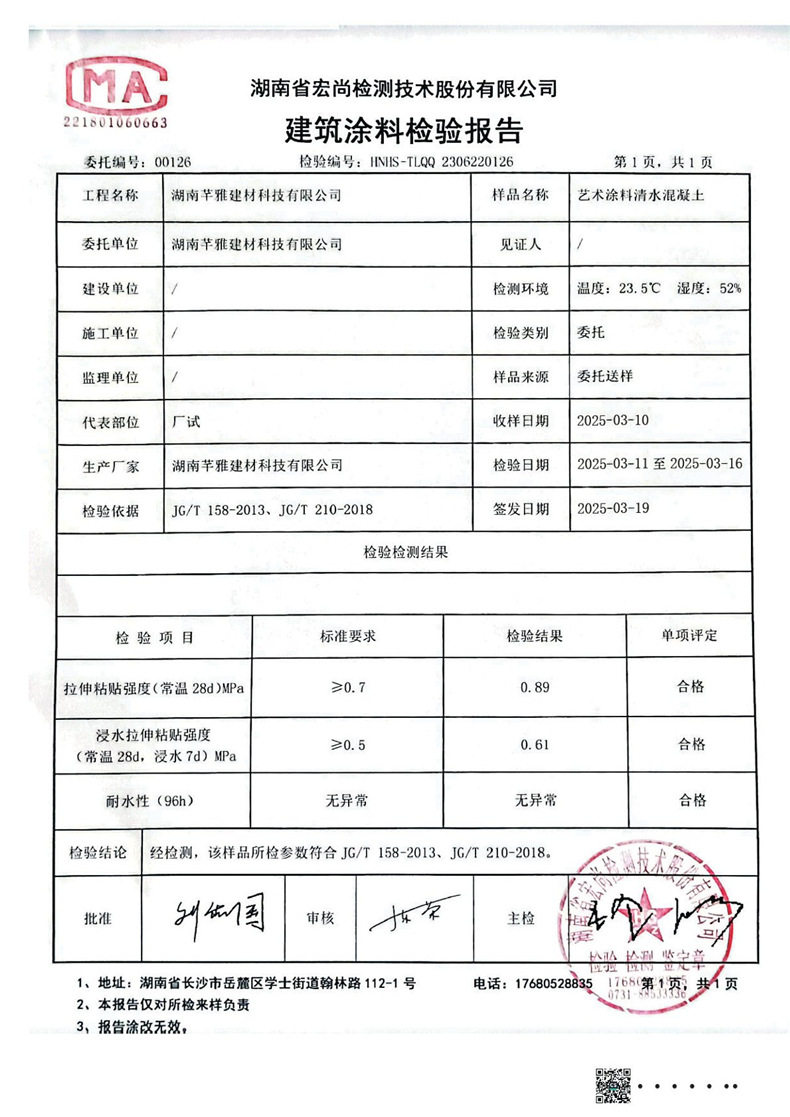 MA
221801060663
湖南省宏尚检测技术股份有限公司
建筑涂料检验报告
委托编号：00126 检验编号：HNHS-TLQQ 2306220126 第 1 页，共 1 页
工程名称 湖南芊雅建材科技有限公司 样品名称 艺术涂料清水混凝土
委托单位 湖南芊雅建材科技有限公司 见证人 /
建设单位 / 检测环境 温度：23.5℃ 湿度：52%
施工单位 / 检验类别 委托
监理单位 / 样品来源 委托送样
代表部位 厂试 收样日期 2025-03-10
生产厂家 湖南芊雅建材科技有限公司 检验日期 2025-03-11 至 2025-03-16
检验依据 JG/T 158-2013、JG/T 210-2018 签发日期 2025-03-19
检验检测结果
检 验 项 目 标准要求 检验结果 单项评定
拉伸粘贴强度（常温 28d）MPa ≥0.7 0.89 合格
浸水拉伸粘贴强度
（常温 28d，浸水 7d）MPa ≥0.5 0.61 合格
耐水性（96h） 无异常 无异常 合格
检验结论 经检测，该样品所检参数符合 JG/T 158-2013、JG/T 210-2018。
批准 审核 主检
湖南省宏尚检测技术股份有限公司
检验 检测 鉴定章
0731-88533336
1、地址：湖南省长沙市岳麓区学士街道翰林路 112-1 号 电话：17680528835 第 1 页，共 1 页
2、本报告仅对所检来样负责
3、报告涂改无效。